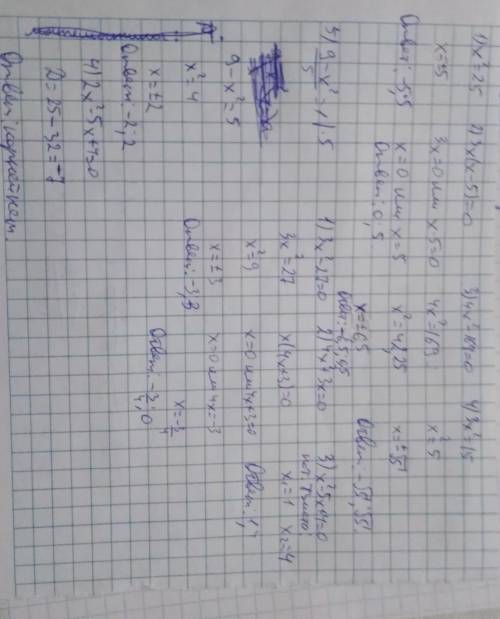 1) x²=25
x=±5
Ответ: -5;5
2) 3x(x-5)=0
3x=0 или x-5=0
x=0 или x=5
Ответ: 0,5
3) 4x²-169=0
4x²=169
x²=42,25
x=±6,5
Ответ: -6,5; 6,5
4) 3x²=15
x²=5
x=±√5
Ответ: -√5; √5
5) (9-x²)/5=1 |·5
9-x²=5
x²=4
x=±2
Ответ: -2;2
1) 3x²-27=0
3x²=27
x²=9
x=±3
Ответ: -3;3
2) 4x²+3x=0
x(4x+3)=0
x=0 или 4x+3=0
x=0 или 4x=-3
x=-3/4
Ответ: -3/4; 0
3) x²-5x+4=0
x₁=1 x₂=4
Ответ: 1,4
4) 2x²-5x+4=0
D=25-32=-7
Ответ: корней нет.